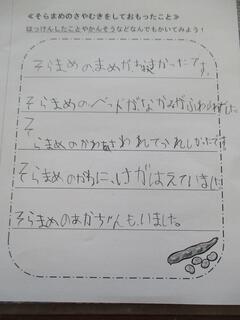 ≪そらまめのさやむきをしておもったこと≫
はっけんしたことやかんそうなどなんでもかいてみよう!
そらまめのまめがおおきかったです。
そらまめのベッドがなかみがふわふわでした
そ
らまめのかわあさわれてうれしかったです
そらまめのかわに、けがはえていました
そらまめのあかちゃんも、いました。